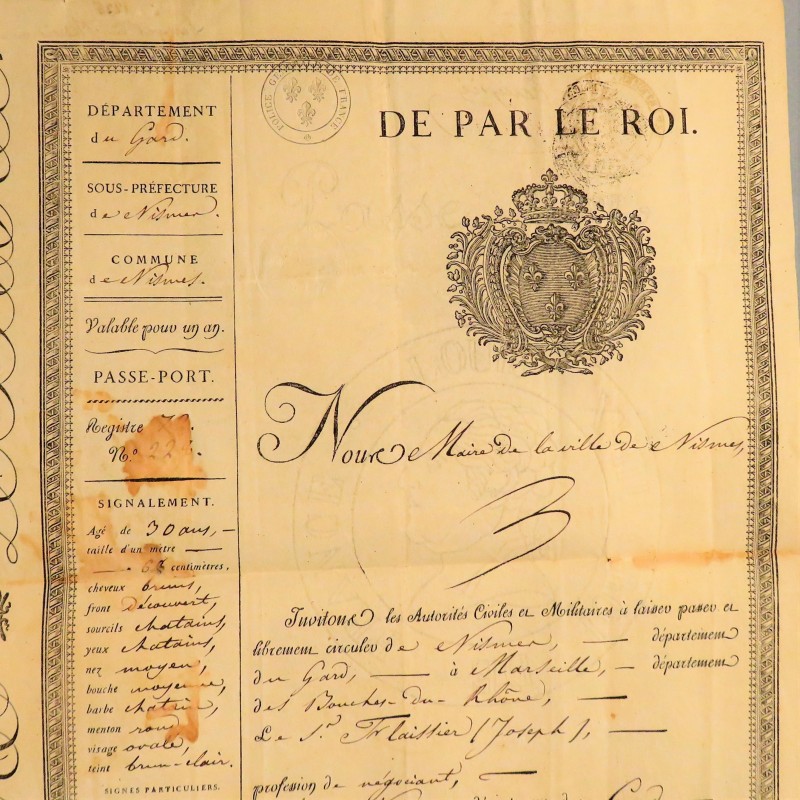 DÉPARTEMENT
du Gard.
SOUS-PRÉFECTURE
de Nismes.
COMMUNE
de Nismes.
Valable pour un an.
PASSE-PORT.
Registre
N.º
SIGNALEMENT.
Agé de 30 ans,
taille d'un metre
centimètres,
cheveux bruns,
front découvert,
sourcils chatains,
yeux chatains,
nez moyen,
bouche moyenne,
barbe
menton rond,
visage ovale,
teint brun-clair.
SIGNES PARTICULIERS.
POLICE GÉNÉRALE DE FRANCE
DE PAR LE ROI.
Nous Maire de la ville de Nismes,
Invitons les Autorités Civiles et Militaires à laisser passer et
librement circuler de Nismes, département
du Gard, à Marseille, département
des Bouches-du-Rhône,
Le S.r Flaissier (Joseph),
profession de négociant,